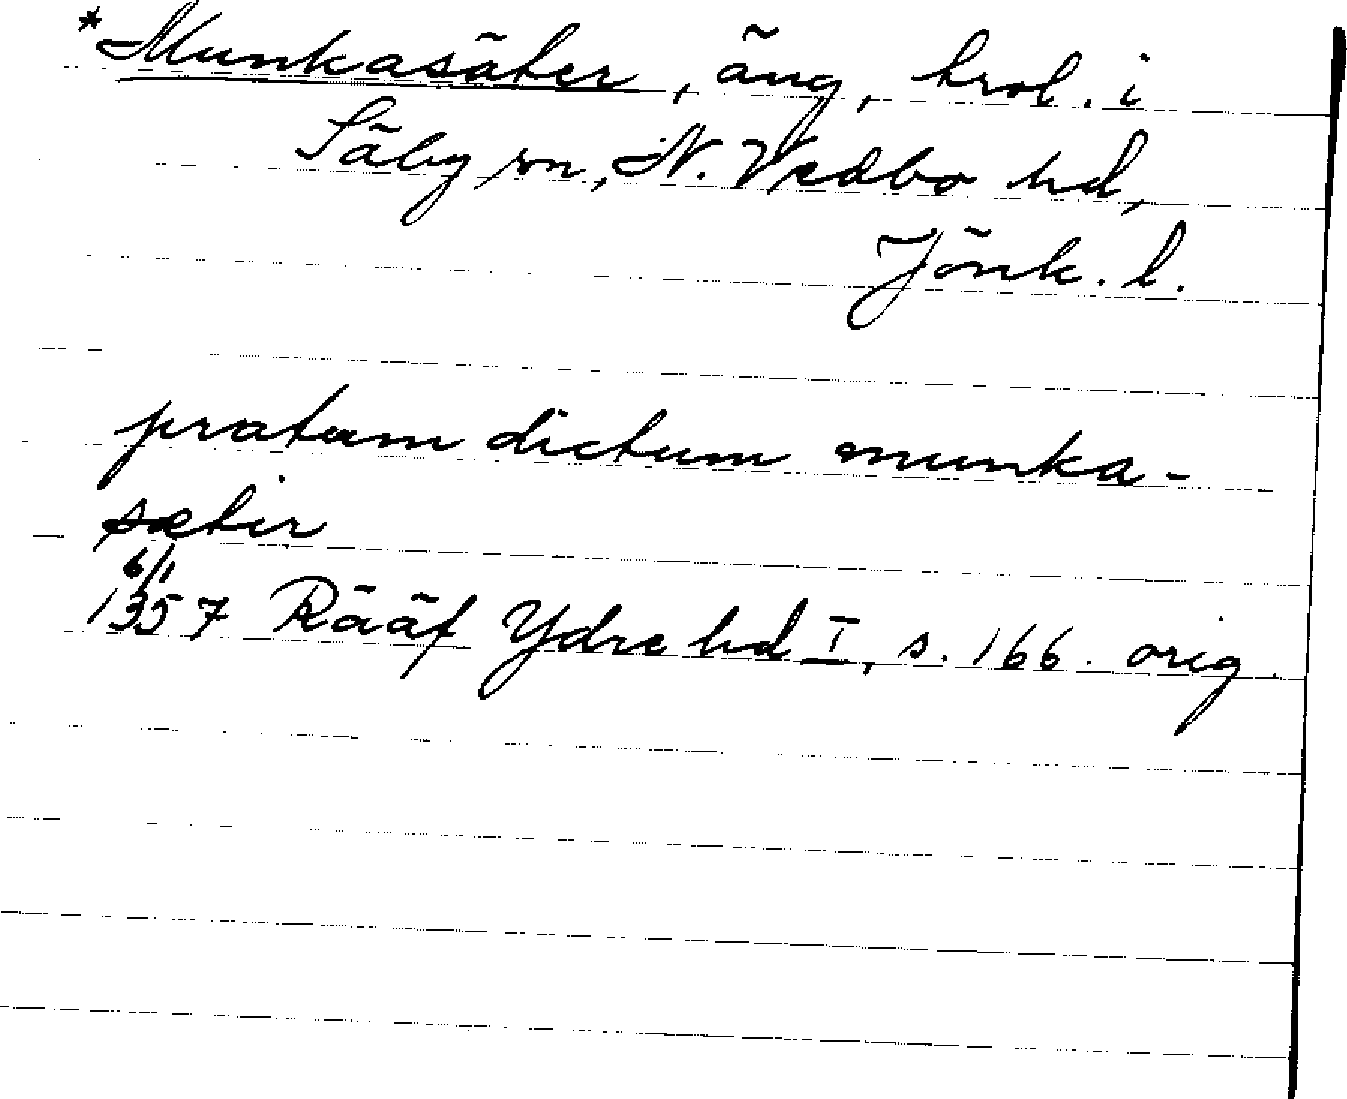 *Munkasäter, äng, trol. i
Säby sn, N. Vedbo hd,
Jönk. l.
pratum dictum munka-
sætir
6/1
1357 Rääf Ydre hd I, s. 166. orig.